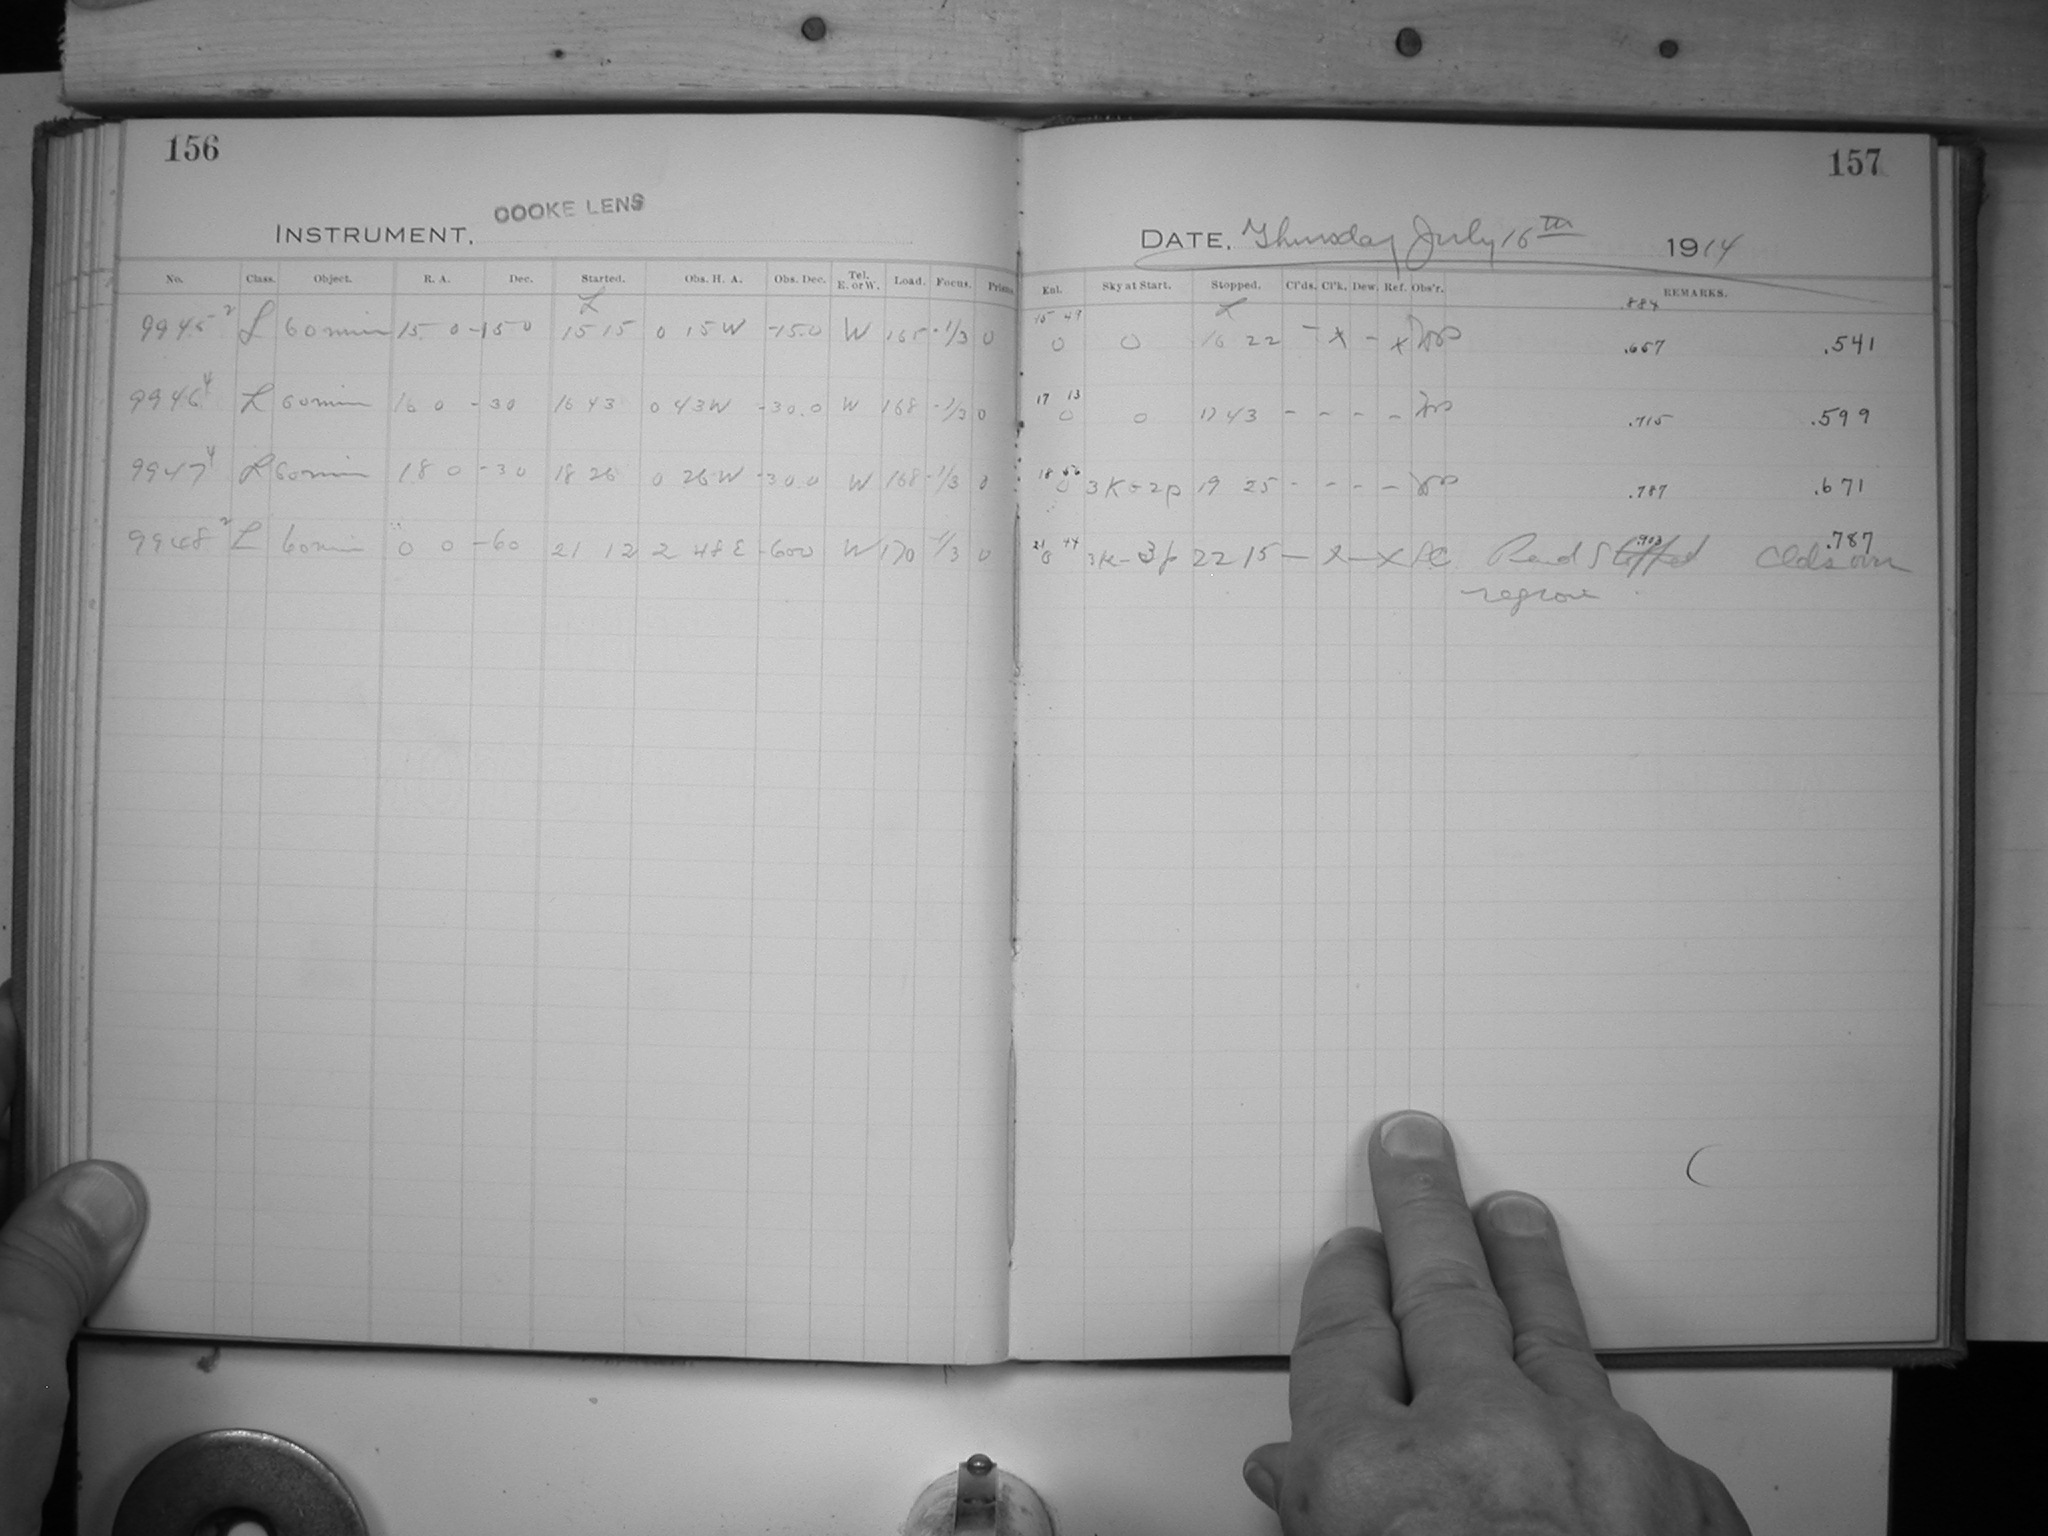 156
COOKE LENS
INSTRUMENT,
No. Class. Object. R. A. Dec. Started. Obs. H. A. Obs. Dec. Tel. E. or W. Load. Focus. Prisms
L
9945 2 L 60 min 15 0 -15 0 15 15 0 15 W -15.0 W 165 -1/3 0
9946 4 L 60 min 16 0 -30 16 43 0 43 W -30.0 W 168 -1/3 0
9947 4 L 60 min 18 0 -30 18 26 0 26 W -30.0 W 168 -1/3 0
9948 2 L 60 min 0 0 -60 21 12 2 48 E -600 W 170 -1/3 0
157
DATE, Thursday July 16th 1914
Enl. Sky at Start. Stopped. Cl'ds. Cl'k. Dew. Ref. Obs'r. REMARKS.
L .884
15 49
0 0 16 22 - x - x .657 .541
17 13
0 0 17 43 - - - - .715 .599
18 56
0 3K-2p 19 25 - - - - .787 .671
21 44 .903 .787
0 3K-3p 22 15 - x - x Clds over